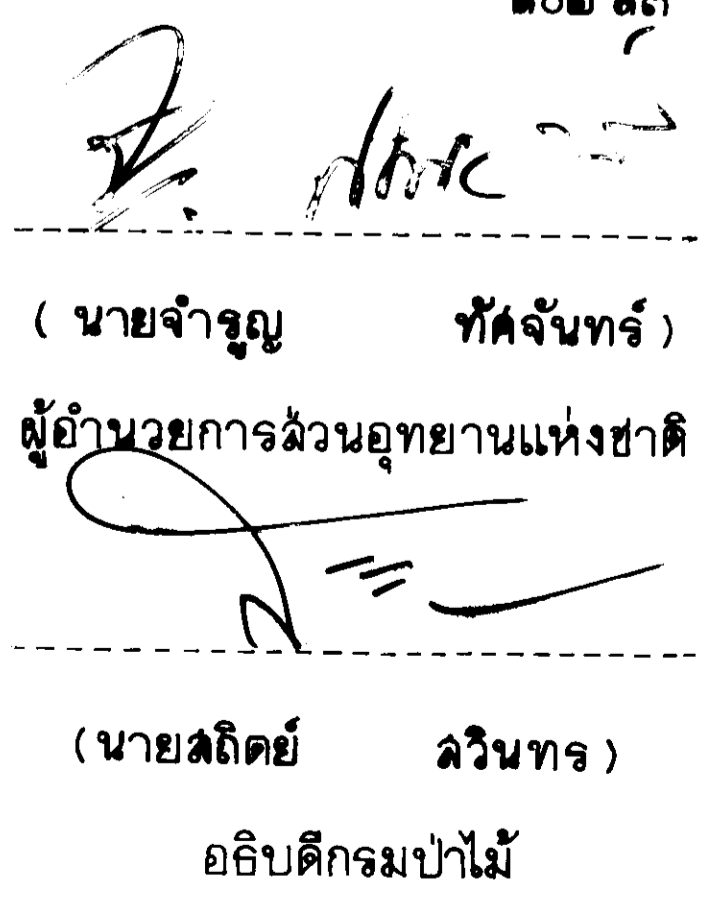 ( นายจำรูญ ทัศจันทร์ )
ผู้อำนวยการส่วนอุทยานแห่งชาติ
( นายสถิตย์ สวินทร )
อธิบดีกรมป่าไม้